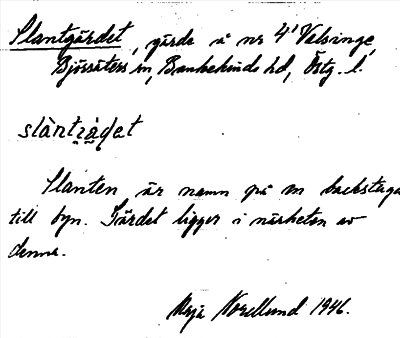 Slantgärdet, gärde å nr 4¹ Valsinge,
Björsäters sn, Bankekinds hd, Östg. l.
slàntjädet
Slanten är namn på en backstuga
till byn. Gärdet ligger i närheten av
denna.
Maja Norellund 1946.